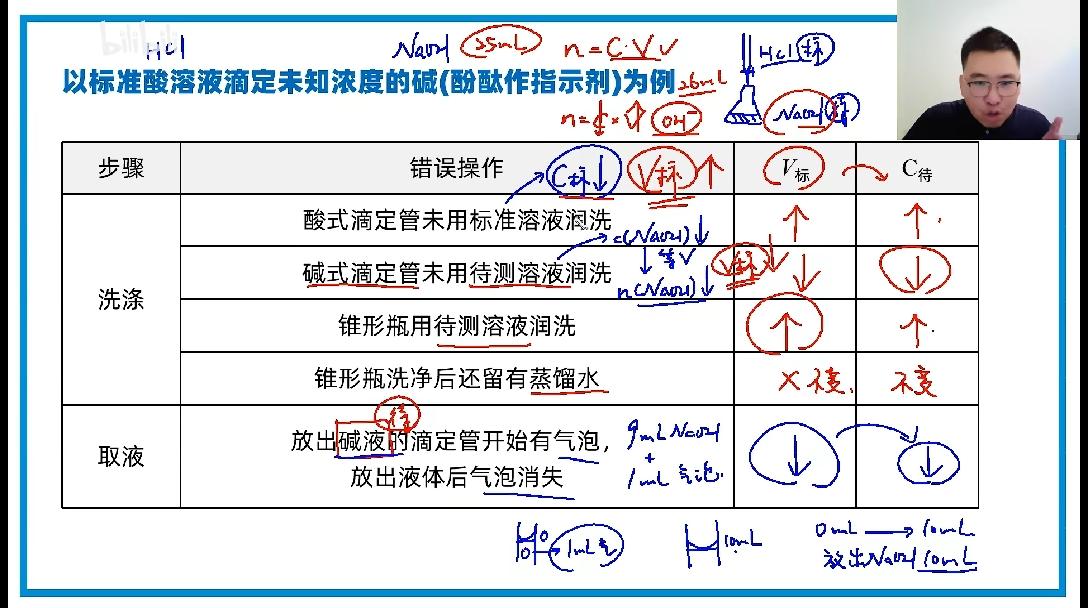 bilibili
HCl NaOH 25mL n=C·V√ HCl 标
以标准酸溶液滴定未知浓度的碱(酚酞作指示剂)为例 26mL
n=C×V OH⁻ NaOH 待
步骤 错误操作 C标↓ V标↑ V标 C待
酸式滴定管未用标准溶液润洗 ↑ ↑
c(NaOH)↓
洗涤 碱式滴定管未用待测溶液润洗 ↓等V V标↓ ↓ ↓
n(NaOH)↓
锥形瓶用待测溶液润洗 ↑ ↑
锥形瓶洗净后还留有蒸馏水 × 不变. 不变
待
取液 放出碱液的滴定管开始有气泡, 9mL NaOH ↓ ↓
+
放出液体后气泡消失 1mL 气泡.
0 0 1mL气 10mL 0mL → 10mL
放出NaOH 10mL